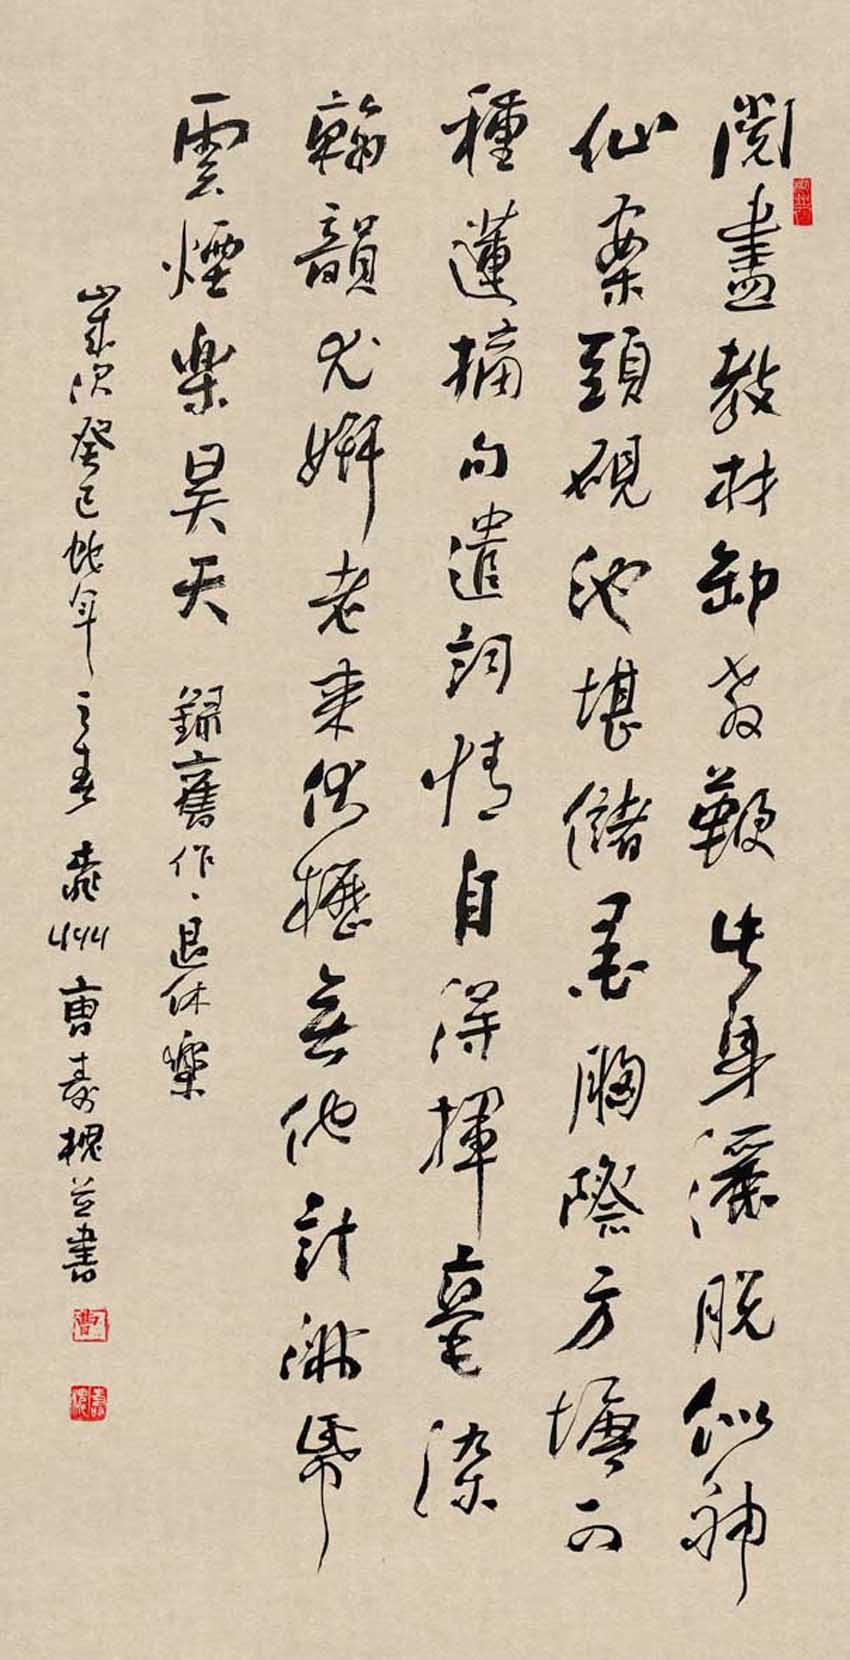 閱盡教材卸教鞭此身灑脫似神
仙案頭硯池堪儲墨胸際方塘可
種蓮摘句遣詞情自得揮毫染
翰韻尤妍老來伏櫪無他計滿帋
雲煙楽昊天 錄舊作、退休樂
歲次癸巳蛇年之春 州曹壽槐並書